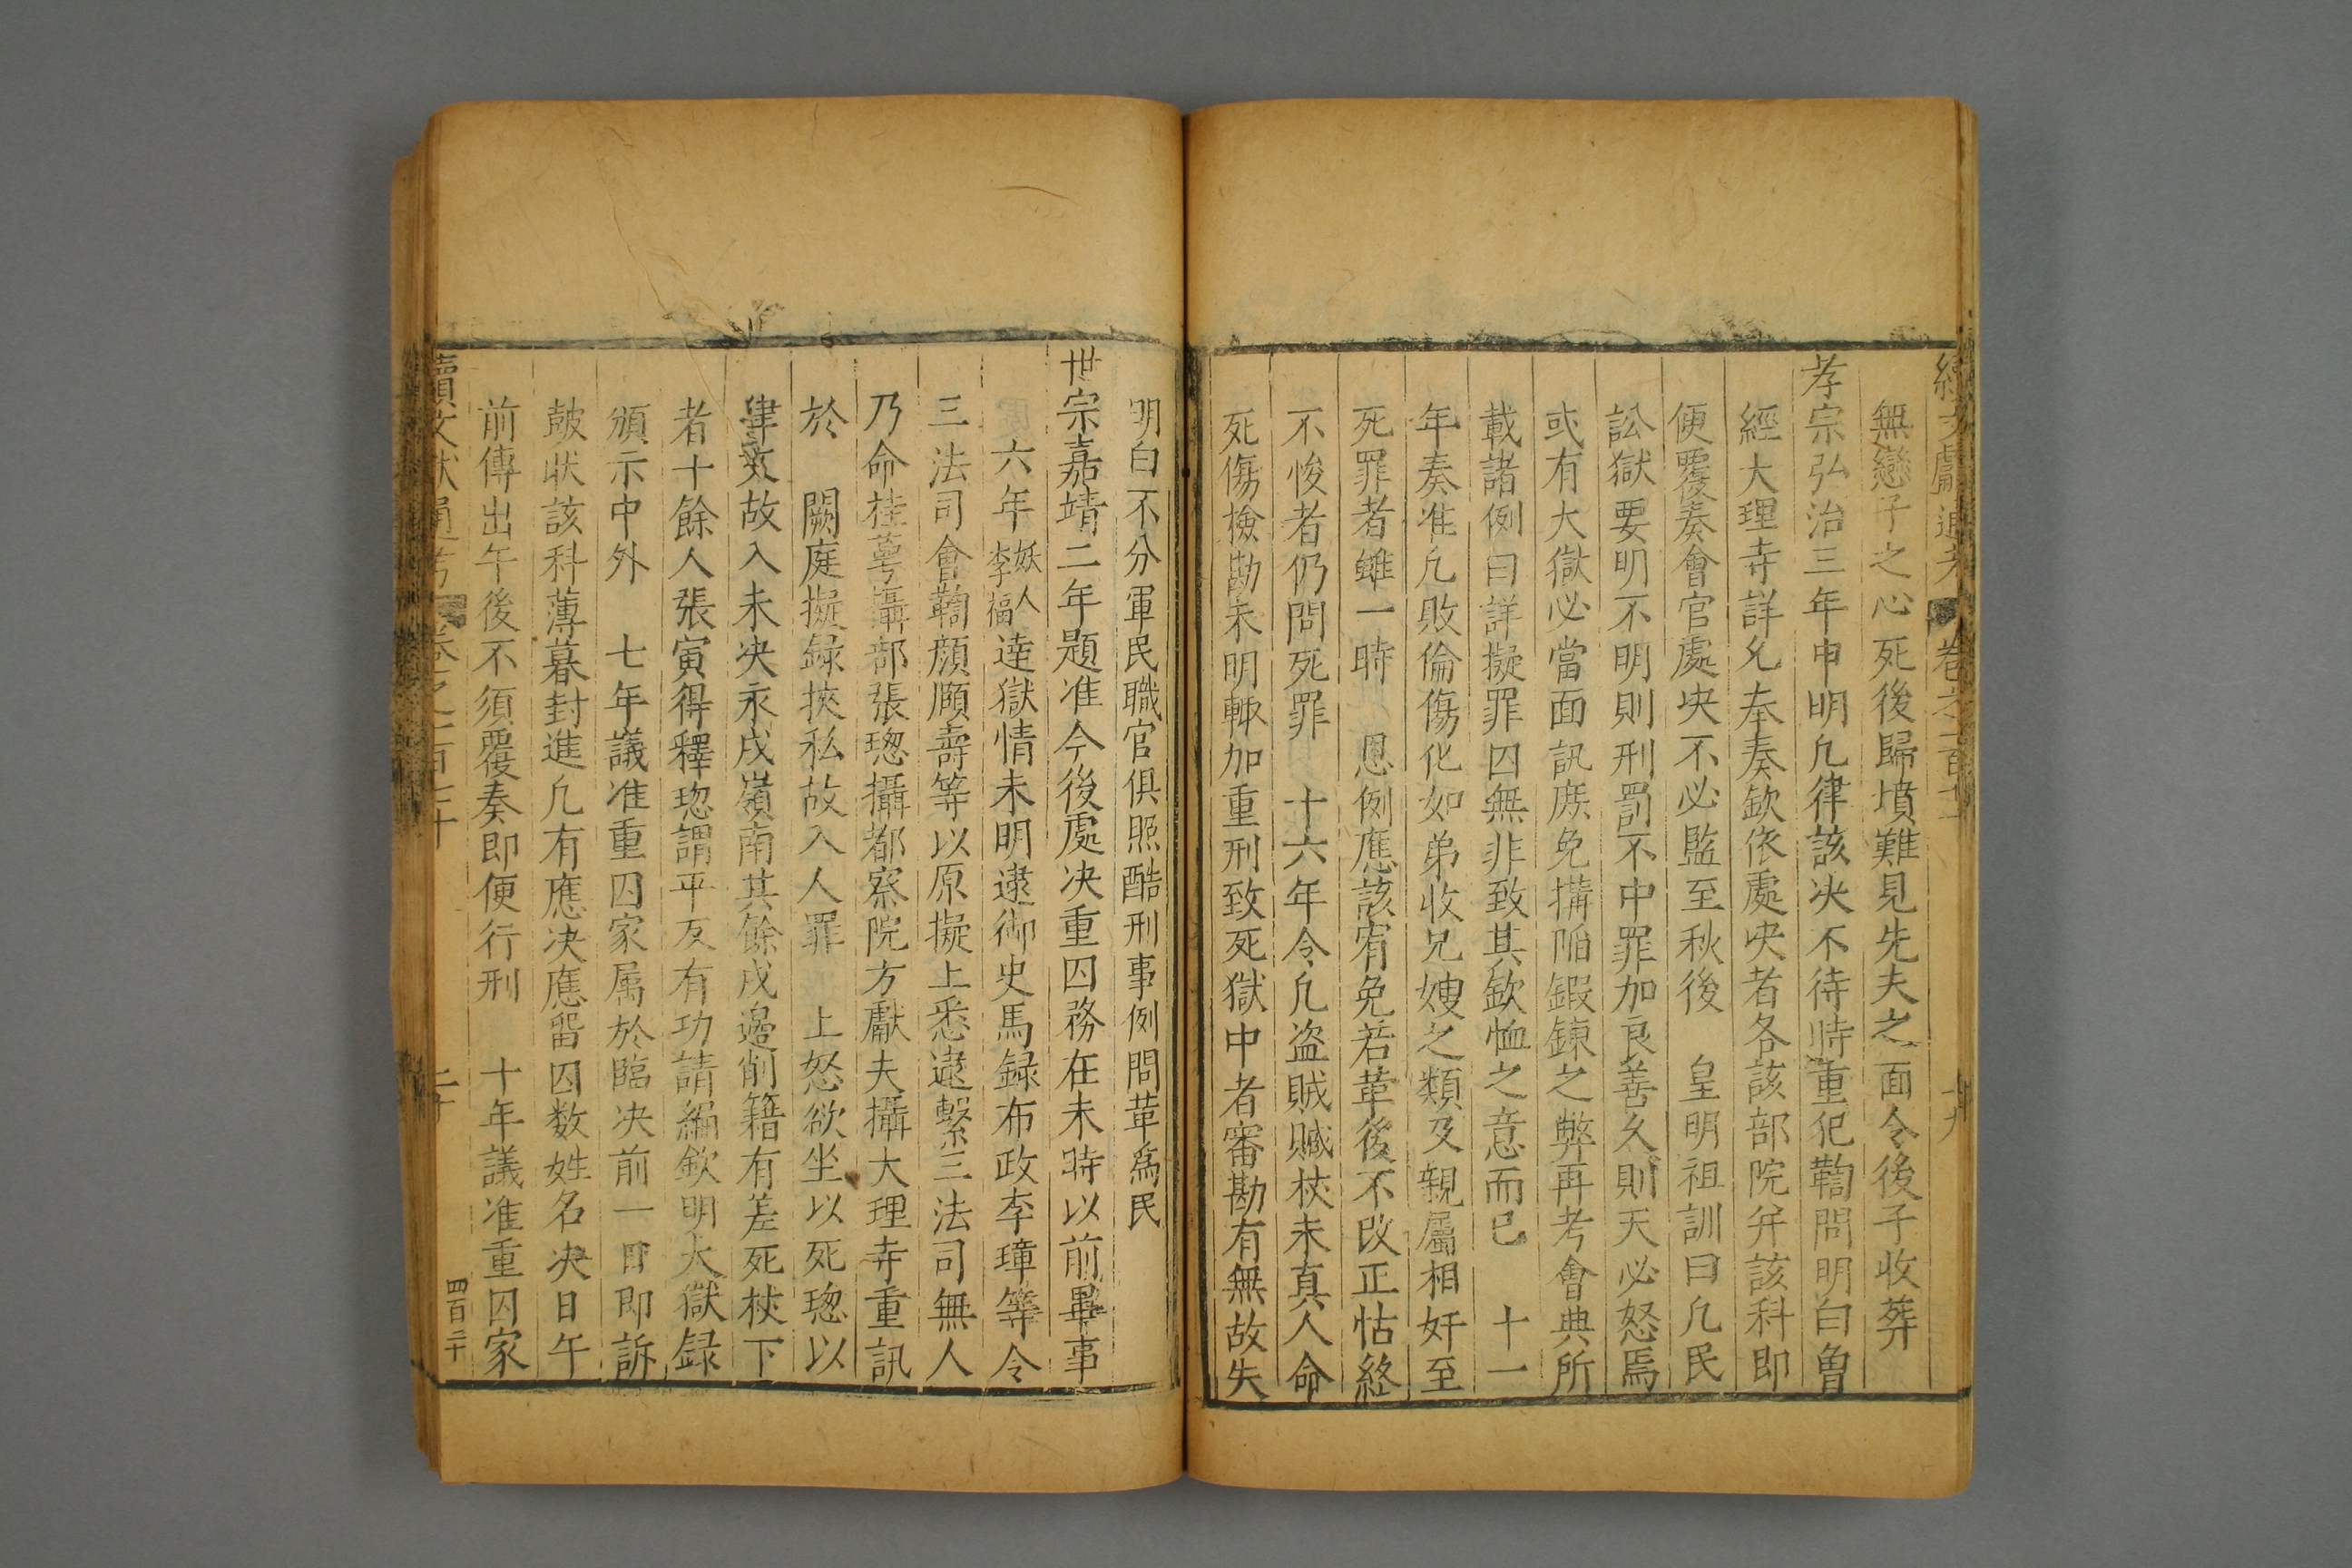 無戀子之心死後歸墳難見先夫之面令後子收葬
孝宗弘治三年申明凡律該决不待時重犯鞫問明白魯
經大理寺詳允奉奏欽依處决者各該部院并該科即
便覆奏會官處决不必監至秋後 皇明祖訓曰凡民
訟獄要明不明則刑罰不中罪加良善久則天必怒焉
或有大獄必當面訊庶免搆陷鍛鍊之弊再考會典所
載諸例曰詳擬罪囚無非致其欽恤之意而已 十一
年奏准凡敗倫傷化如弟收兄嫂之類及親屬相奸至
死罪者雖一時 恩例應該宥免若革後不改正怙終
不悛者仍問死罪 十六年令凡盗賊贓校未真人命
死傷檢勘未明輙加重刑致死獄中者審勘有無故失
明白不分軍民職官俱照酷刑事例問革爲民
世宗嘉靖二年題准今後處决重囚務在未時以前畢事
六年妖人李福逵獄情未明逮御史馬録布政李璋等令
三法司會鞫顔頤壽等以原擬上悉逮繋三法司無人
乃命桂萼攝部張璁攝都察院方獻夫攝大理寺重訊
於 闕庭擬録挾私故入人罪 上怒欲坐以死璁以
律故入未决永戍嶺南其餘戍邉削籍有差死校下
者十餘人張寅得釋璁謂平反有功請編欽明大獄録
頒示中外 七年議准重囚家属於臨决前一日即訴
皷狀該科薄暮封進凡有應决應留囚数姓名决日午
前傳出午後不須覆奏即便行刑 十年議准重囚家
四百二十